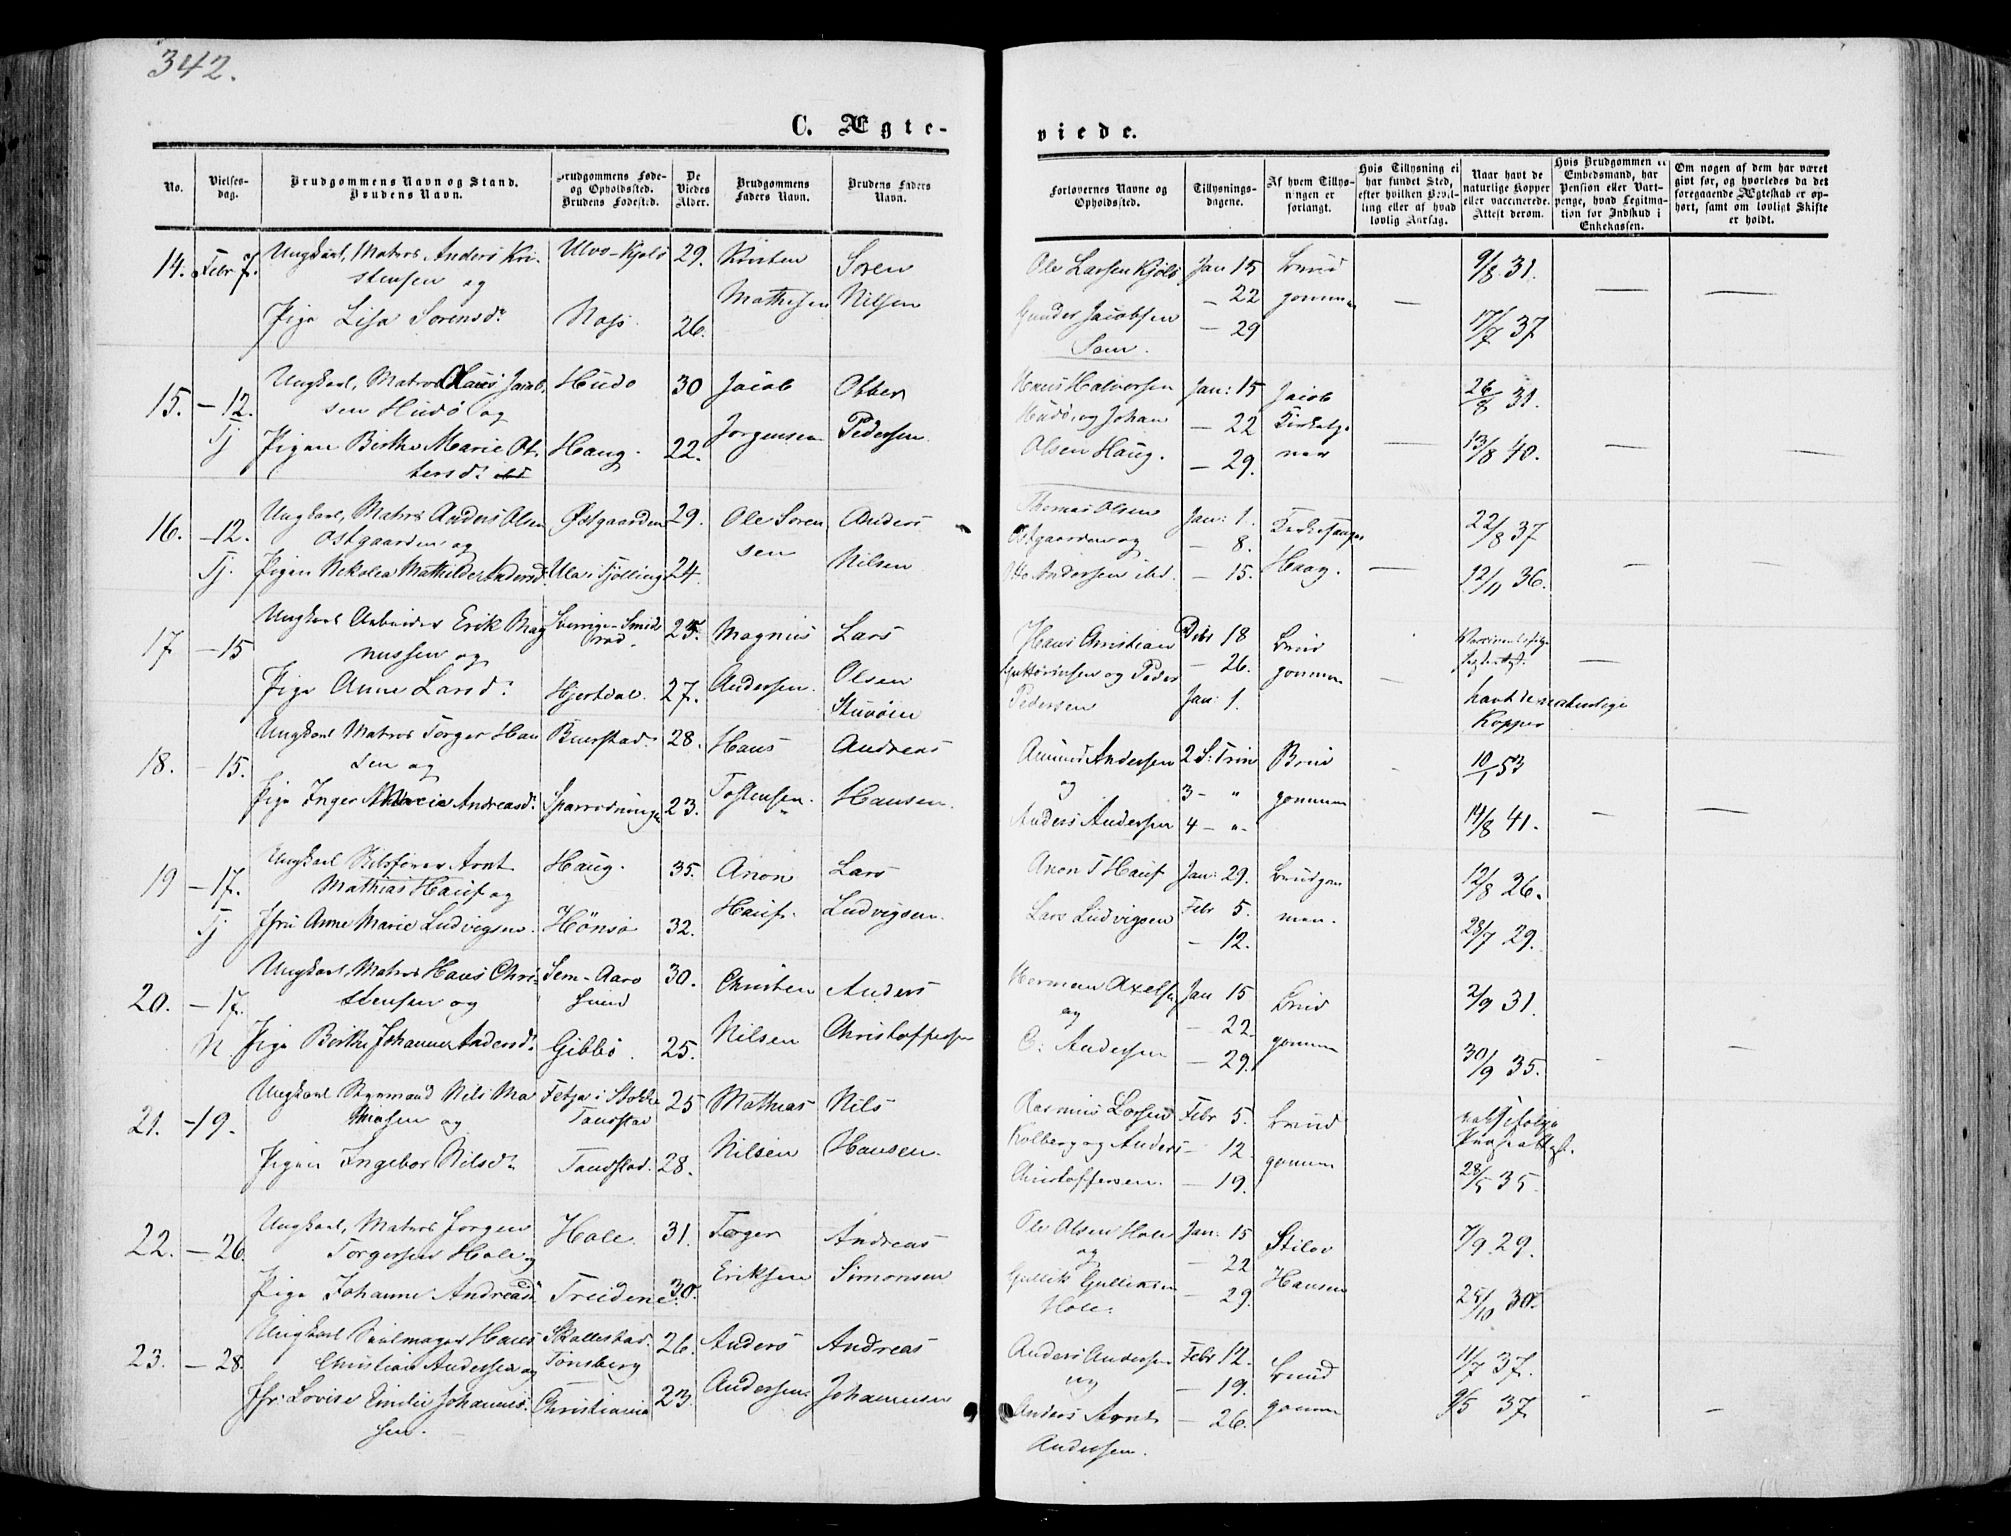 342.
C. Ægte-
viede.
No.
Vielses-
dag.
Brudgommens Navn og Stand.
Brudens Navn.
Brudgommens Føde-
og Opholdssted.
Brudens Fødested.
De
Viedes
Alder.
Brudgommens
Faders Navn.
Brudens Faders
Navn.
Forlovernes Navne og
Opholdssted.
Tillysnings-
dagene.
Af hvem Tillys-
ningen er
forlangt.
Hvis Tillysning ei
har fundet Sted,
efter hvilken Bevil-
ling eller af hvad
lovlig Aarsag.
Naar havt de
naturlige Kopper
eller vaccinerede.
Attest derom.
Hvis Brudgommen er
Embedsmand, har
Pension eller Vart-
penge, hvad Legitima-
tion for Indskud i
Enkekassen.
Om nogen af dem har været
gift før, og hvorledes da det
foregaaende Ægteskab er op-
hørt, samt om lovligt Skifte
er holdt.
14. Febr 7. Ungkarl, Matros Anders Kri- Ulvø-Kjølø 29. Kristen Søren
stensen og Mathisen Nilsen
Pige Lisa Sorensd. 26.
Ole Larsen Kjølø Jan 15 Brud 9/8 31.
Gunder Jacobsen — 22 gommen — — —
Sem. — 29 17/7 37
15. — 12. Ungkarl, Matros Claus Jacob- Hudø 30 Jacob Otter
Tj sen Hudø og Jorgensen Pedersen
Pigen Birthe Marie Ot- Haug. 22.
tersd.
Halvorsen Jan: 15 Jacob 26/8 31.
Hudø, og Johan — 22 Kirketje
Olsen Haug. — 29. ner — 13/8 40. — —
16. — 12. Ungkarl, Matros Anders Olsen Østgaarden 29. Ole Soren Anders
Tj. Østgaarden og sen Nilsen
Pigen Nikolea Mathilde Andersd. Ula i Tjølling 24.
Thomas Olsen Jan: 1. Kirkesanger 22/8 37
Østgaarden og — 8. Haag.
Andersen ibd. — 15. — 12/11 36. — —
17 — 15 Ungkarl Arbeider Erik Mag Sverige-Smids 25. Magnus Lars
nussen og rød. Andersen. Olsen
Pige Anne Larsd. Hjertdal. 27. Stuvøien
Hans Christian Debr 18 Brud
og Peder — 26. gommen —
Pedersen Jan: 1. havt de naturlige
Kopper
18. — 15. Ungkarl Matros Torger Han Buerstad. 28. Hans Andreas
sen og Tostensen. Hansen.
Pige Inger Marie Andreasd. Sparrodningen 23.
Amund Andersen 2 S. Trin Brud 10/1 53
og 3 — " gommen
Anders Andersen 4 — " 14/8 41. — —
19 — 17. Ungkarl Skibsfører Arnt Haug. 35. Anon Lars
Tj Mathias Hauf og Hauf. Ludvigsen.
Jfru Anne Marie Ludvigsen. Hønsø 32.
Anon T Hauf Jan: 29. Brudgom 12/8 26.
Lars Ludvigsen Febr 5. men.
— 12. 28/7 29.
20. — 17. Ungkarl, Matros Hans Chri- Sem-Aarø 30. Christen Anders
N stensen og sund Nilsen Christoffersen
Pige Berthe Johanne Andersd. Gibbø. 25.
Herman Axelsen Jan 15 Brud 2/9 31.
og — 22 gommen
C: Andersen — 29. 30/9 35. — —
21. — 19. Ungkarl Styrmand Nils Ma Fetja i Stokke 25 Mathias Nils
thiasen og Taudstad Nilsen Hansen.
Pigen Ingebor Nilsd. Taudstad. 28.
Rasmus Larsen Febr 5. Brud
Kolberg og Anders — 12. gommen
Christoffersen. — 19. 28/5 35.
22. — 26. Ungkarl, Matros Jorgen Hole. 31. Torger Andreas
Torgersen Hole og Eriksen Simonsen
Pige Johanne Andreasd. Treidene. 30.
Ole Olsen Hole Jan: 15 7/9 29.
og — 22 Hansen
Gullik Gulliksen — 29.
Hole. 25/10 30.
23. — 28. Ungkarl Seilmager Hans Skallestad. 26. Anders Andreas
Christian Andersen og Tønsberg Andersen. Johannesen
Jfr. Lovise Emilie Johannes- Christiania 23.
sen.
Anders Andersen Febr 12. Brud 11/7 37.
og — 19. gommen 9/5 37
Anders Arnt — 26.
Andersen.